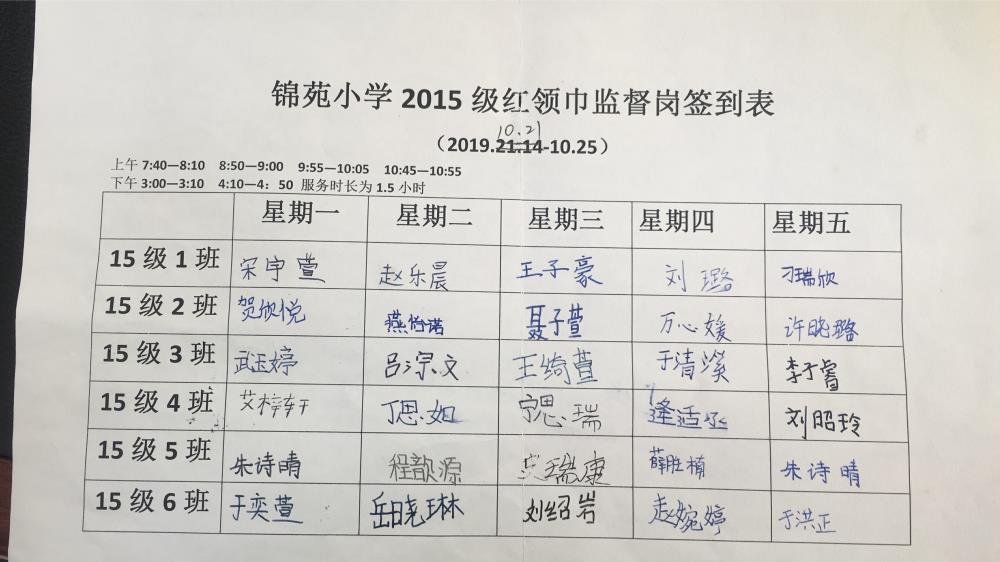 锦苑小学 2015 级红领巾监督岗签到表
10.21
(2019.21.14-10.25)
上午 7:40—8:10 8:50—9:00 9:55—10:05 10:45—10:55
下午 3:00—3:10 4:10—4：50 服务时长为 1.5 小时
星期一 星期二 星期三 星期四 星期五
15 级 1 班 宋宇萱 赵乐晨 王子豪 刘璐 刁瑞欣
15 级 2 班 贺欣悦 燕怡诺 聂子萱 万心媛 许晓璐
15 级 3 班 武玉婷 吕宗文 王绮萱 于清溪 李子睿
15 级 4 班 艾梓轩 丁思如 宁思瑞 刘昭玲
15 级 5 班 朱诗晴 程歆源 薛胜楠 朱诗晴
15 级 6 班 于奕萱 岳晓琳 刘绍岩 赵婉婷 于洪正